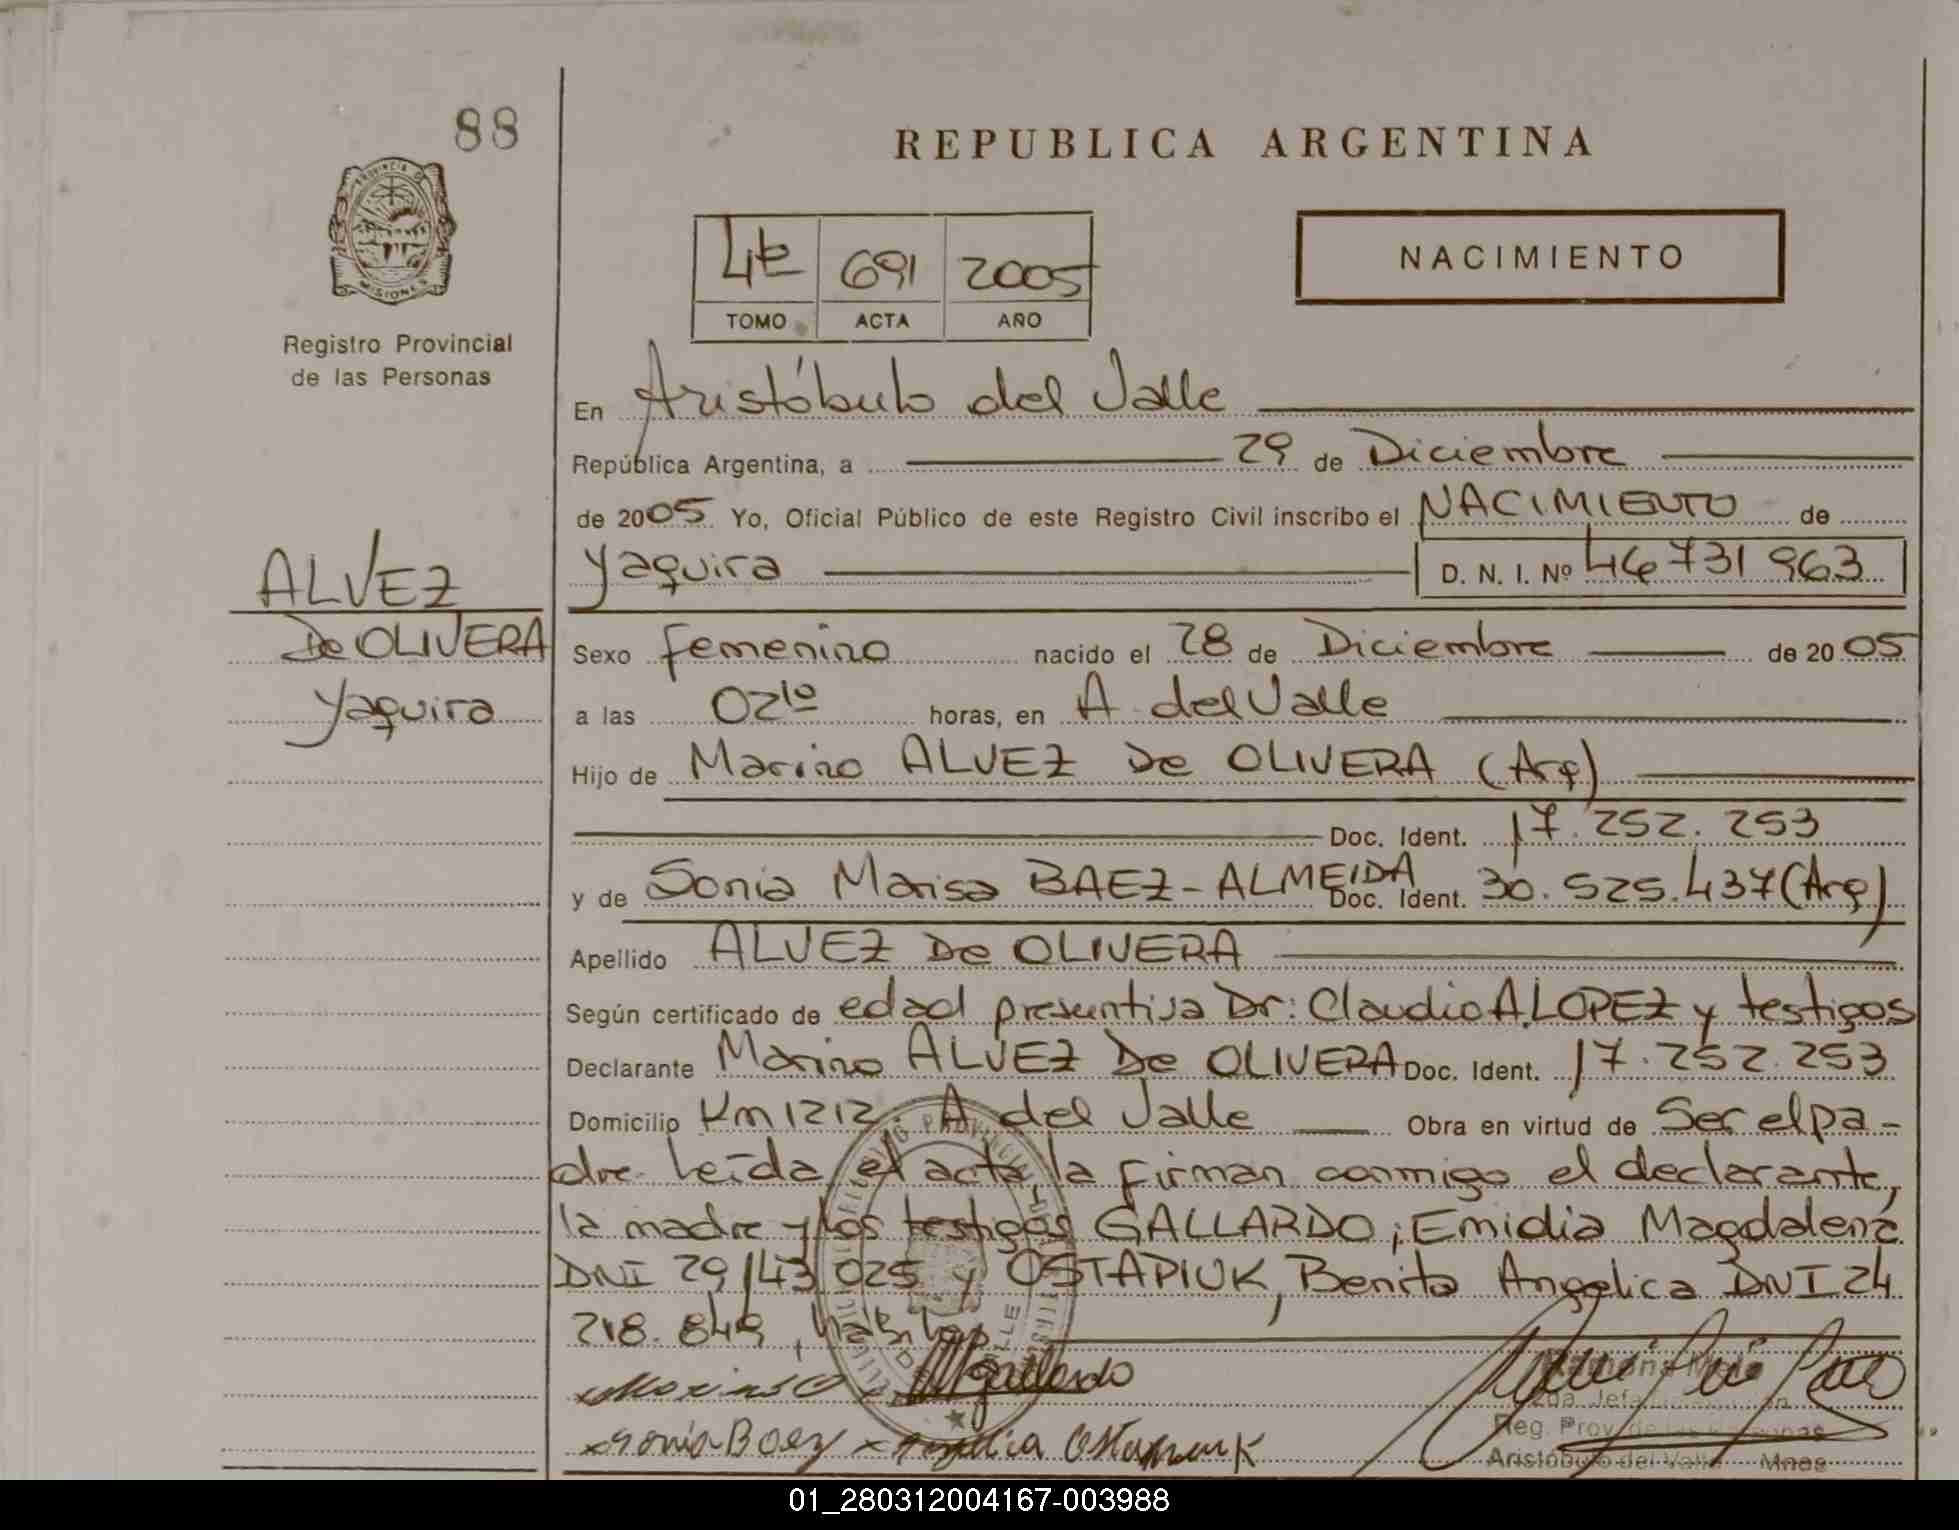 88
REPUBLICA ARGENTINA
PROVINCIA DE
MISIONES
Registro Provincial
de las Personas
691 2005
TOMO ACTA AÑO
NACIMIENTO
En Aristóbulo del Valle
República Argentina, a 29 de Diciembre
de 2005 Yo, Oficial Público de este Registro Civil inscribo el NACIMIENTO de
Yaquira D. N. I. Nº 46 731 963
ALVEZ
De OLIVERA
Yaquira
Sexo femenino nacido el 28 de Diciembre de 2005
a las 02 10 horas, en A. del Valle
Hijo de Marino ALVEZ De OLIVERA (Arg)
Doc. Ident. 17.252.253
y de Sonia Marisa BAEZ-ALMEIDA Doc. Ident. 30.525.437 (Arg)
Apellido ALVEZ De OLIVERA
Según certificado de edad presuntiva Dr: Claudio A. LOPEZ y testigos
Declarante Marino ALVEZ De OLIVERA Doc. Ident. 17.252.253
Domicilio Km 1212. A del Valle Obra en virtud de Ser el pa-
dre. Leída el acta, la firman conmigo el declarante,
la madre y los testigos GALLARDO, Emidia Magdalena
DNI 29 143 025 y OSTAPIUK, Benita Angelica DNI 24
218.849, hábiles
Marino Gallardo
Sonia Baez Angelica Ostapiuk
Reg. Prov. de las Personas
Aristóbulo del Valle Mnes
01_280312004167-003988